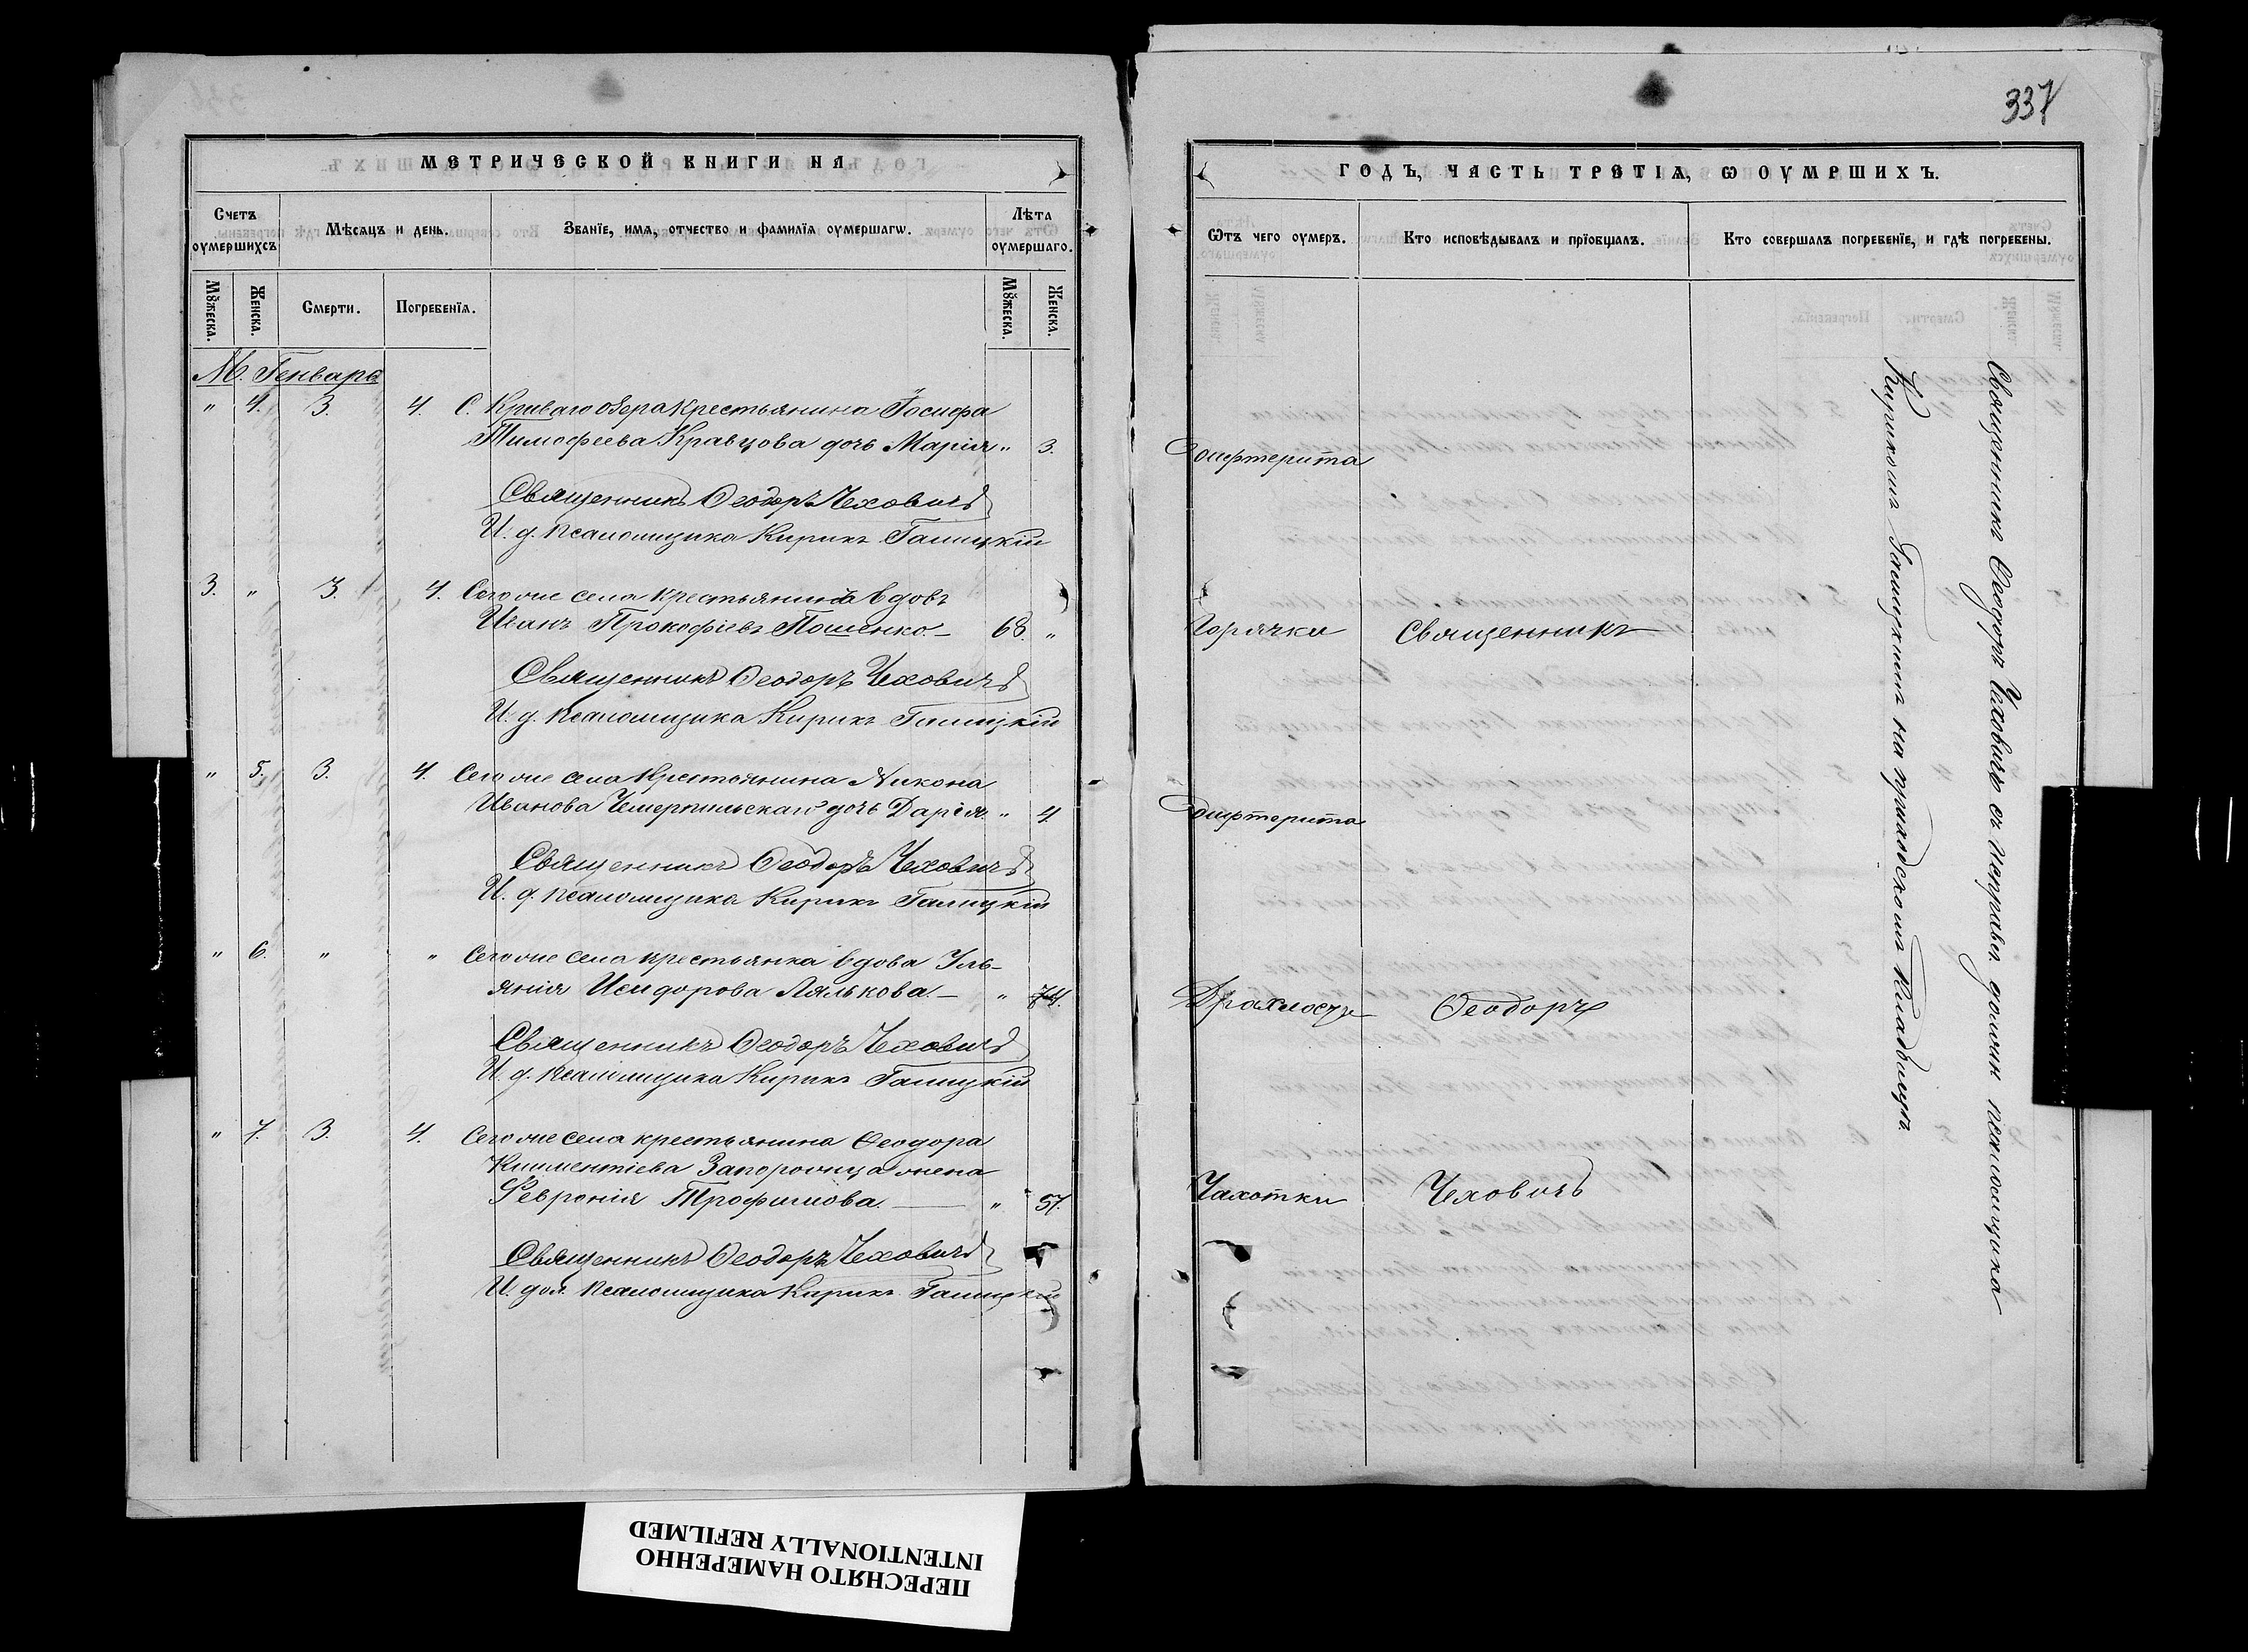 337
МЕТРИЧЕСКОЙ КНИГИ НА
Счетъ оумершихсъ
Мѣсѧцъ и день.
Званїе, имѧ, отчество и фамилїѧ оумершагѡ.
Лѣта оумершаго.
Мꙋжеска.
Женска.
Смерти.
Погребенїѧ.
Мꙋжеска.
Женска.
М. Генварь
" 4. 3. 4. С. Криваго озера крестьянина Іосифа
Тимофеева Кравцова дочь Марія " 3.
Священникъ Ѳеодоръ Чеховичъ
И. д. псаломщика Кирикъ Галицкій
3. " 3. 4. Сего же села крестьянинъ вдовъ
Иванъ Прокофіевъ Пошенко.— 68. "
Священникъ Ѳеодоръ Чеховичъ
И. д. псаломщика Кирикъ Галицкій
" 5. 3. 4. Сего же села крестьянина Никона
Иванова Чемерпильскаго дочь Дарія. " 4.
Священникъ Ѳеодоръ Чеховичъ
И. д. псаломщика Кирикъ Галицкій
" 6. " " Сего же села крестьянка вдова Уль-
янія Исидорова Лялькова.— " 74.
Священникъ Ѳеодоръ Чеховичъ
И. д. псаломщика Кирикъ Галицкій
" 7. 3. 4. Сего же села крестьянина Ѳеодора
Климентіева Запорожца жена
Февронія Трофимова. — " 57.
Священникъ Ѳеодоръ Чеховичъ
И. дол. псаломщика Кирикъ Галицкій
ГОДЪ, ЧАСТЬ ТРЕТІѦ, Ѡ ОУМРШИХЪ.
Ѿтъ чего оумеръ.
Кто исповѣдывалъ и прїобщалъ.
Кто совершалъ погребенїе, и гдѣ погребены.
Дифтерита
Горячки Священникъ
Дифтерита
Дряхлости Ѳеодоръ
Чахотки Чеховичъ
Священникъ Ѳеодоръ Чеховичъ съ исправл. должн. псаломщика
Кирикомъ Галицкимъ на приходскомъ кладбищѣ.
ПЕРЕСНЯТО НАМЕРЕННО
INTENTIONALLY REFILMED